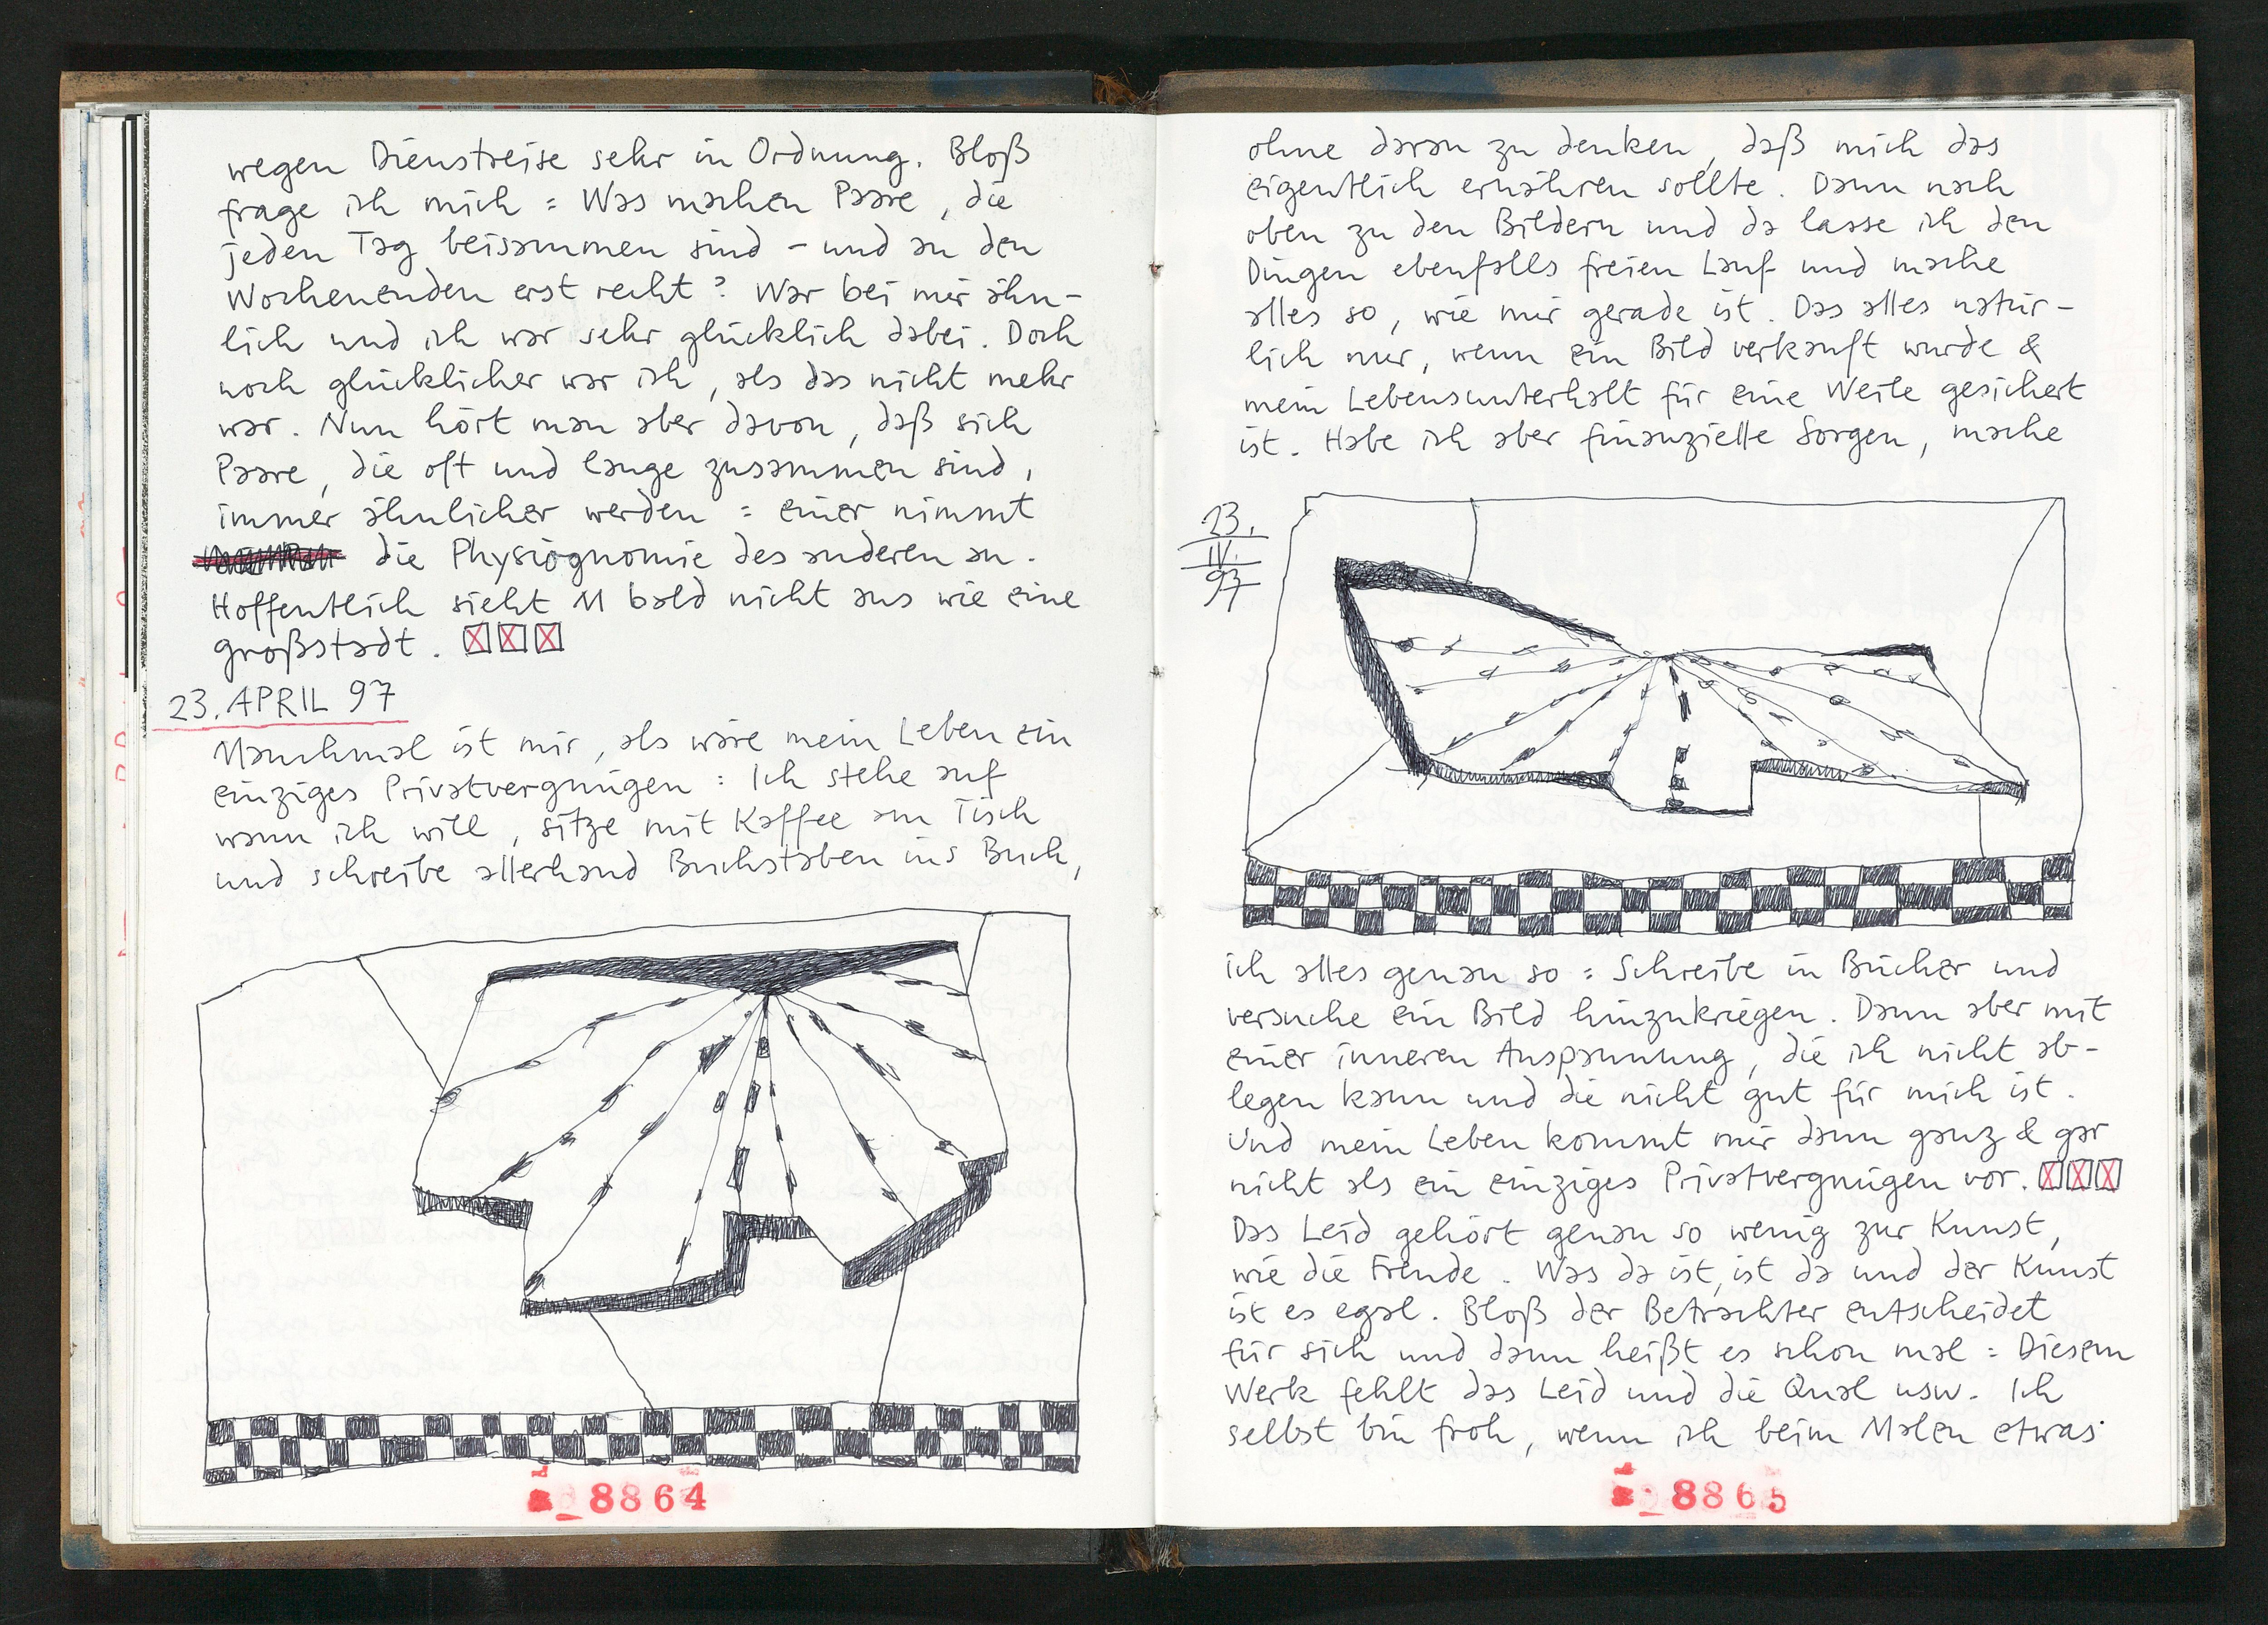 wegen Dienstreise sehr in Ordnung. Bloß
frage ich mich : Was machen Paare, die
jeden Tag beisammen sind – und an den
Wochenenden erst recht? War bei mir ähn-
lich und ich war sehr glücklich dabei. Doch
noch glücklicher war ich, als das nicht mehr
war. Nun hört man aber davon, daß sich
Paare, die oft und lange zusammen sind,
immer ähnlicher werden : einer nimmt
die Physiognomie des anderen an.
Hoffentlich sieht M bald nicht aus wie eine
Großstadt.
23. APRIL 97
Manchmal ist mir, als wäre mein Leben ein
einziges Privatvergnügen : Ich stehe auf
wann ich will, sitze mit Kaffee am Tisch
und schreibe allerhand Buchstaben ins Buch,
8864
ohne daran zu denken, daß mich das
eigentlich ernähren sollte. Dann nach
oben zu den Bildern und da lasse ich den
Dingen ebenfalls freien Lauf und mache
alles so, wie mir gerade ist. Das alles natür-
lich nur, wenn ein Bild verkauft wurde &
mein Lebensunterhalt für eine Weile gesichert
ist. Habe ich aber finanzielle Sorgen, mache
23.
IV.
97
ich alles genau so : Schreibe in Bücher und
versuche ein Bild hinzukriegen. Dann aber mit
einer inneren Anspannung, die ich nicht ab-
legen kann und die nicht gut für mich ist.
Und mein Leben kommt mir dann ganz & gar
nicht als ein einziges Privatvergnügen vor.
Das Leid gehört genau so wenig zur Kunst,
wie die Freude. Was da ist, ist da und der Kunst
ist es egal. Bloß der Betrachter entscheidet
für sich und dann heißt es schon mal : Diesem
Werk fehlt das Leid und die Qual usw. Ich
selbst bin froh, wenn ich beim Malen etwas
8865